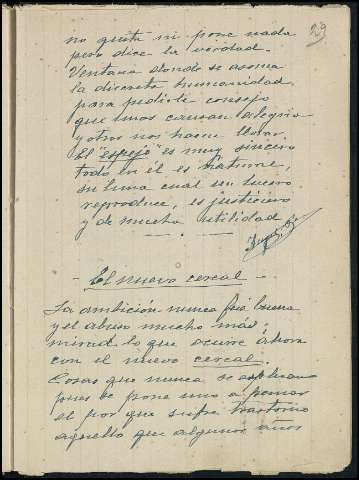 29
no quita ni pone nada
pero dice la verdad.
Ventana donde se asoma
la discreta humanidad
para pedirle consejo
que unos causan alegria
y otros nos hacen llorar.
El "espejo" es muy sincero
todo en él es natural,
su luna cual un lucero
reproduce, es justiciero
y de mucha utilidad
- El nuevo cereal -
La ambición nunca fué buena
y el abuso mucho más,
mirad lo que ocurre ahora
con el nuevo cereal.
Cosas que nunca se explican
pues se pone uno a pensar
el por que sufre trastorno
aquello que algunos años